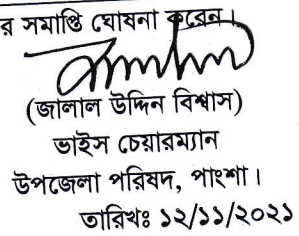 র সমাপ্তি ঘোষনা করেন।
(জালাল উদ্দিন বিশ্বাস)
ভাইস চেয়ারম্যান
উপজেলা পরিষদ, পাংশা।
তারিখঃ ১২/১১/২০২১